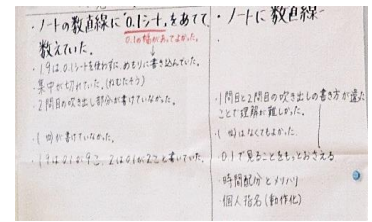 ・ノートの数直線に「0.1シート」をあてて
数えていた。
0.1の幅があってよかった。
・1.9は0.1シートを使わずに、めもりに書き込んでいた。
集中が切れていた。(ねむたそう)
・2問目の吹き出し部分が書けていなかった。
が書けていなかった。
1.9は0.1が9こ、2は0.1が2こと書いていた。
・ノートに数直線
・1問目と2問目の吹き出しの書き方が違った
ことで理解が難しかった。
はなくてもよかった。
・0.1で見ることをもっとおさえる
・時間配分とメリハリ
・個人指名(動作化)